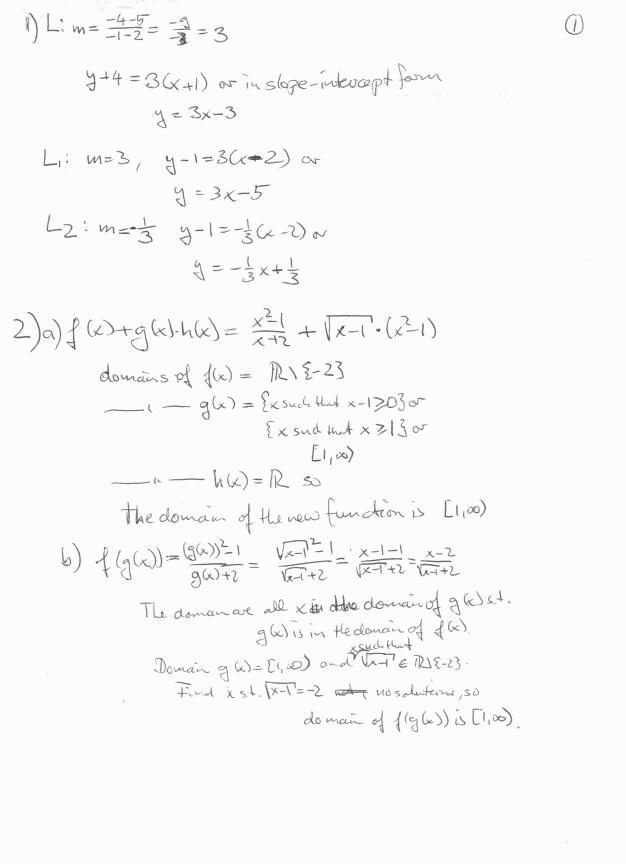 ①
1) L: m = (-4-5)/(-1-2) = (-9)/(-3) = 3
y+4 = 3(x+1) or in slope-intercept form
y = 3x-3
L₁: m=3, y-1=3(x-2) or
y = 3x-5
L2: m=-1/3 y-1=-1/3(x-2) or
y = -1/3x+1/3
2) a) f(x)+g(x)·h(x) = (x²-1)/(x+2) + √(x-1)·(x²-1)
domains of f(x) = ℝ\{-2}
—— " — g(x) = {x such that x-1⩾0} or
{x such that x ⩾1} or
[1,∞)
—— " —— h(x) = ℝ so
The domain of the new function is [1,∞)
b) f(g(x)) = ((g(x))²-1)/(g(x)+2) = (√(x-1)²-1)/(√(x-1)+2) = (x-1-1)/(√(x-1)+2) = (x-2)/(√(x-1)+2)
The domain are all x in the domain of g(x) s.t.
g(x) is in the domain of f(x).
Domain g(x) = [1,∞) and x such that √(x-1) ∈ ℝ\{-2}.
Find x s.t. √(x-1) = -2 no solutions, so
domain of f(g(x)) is [1,∞).